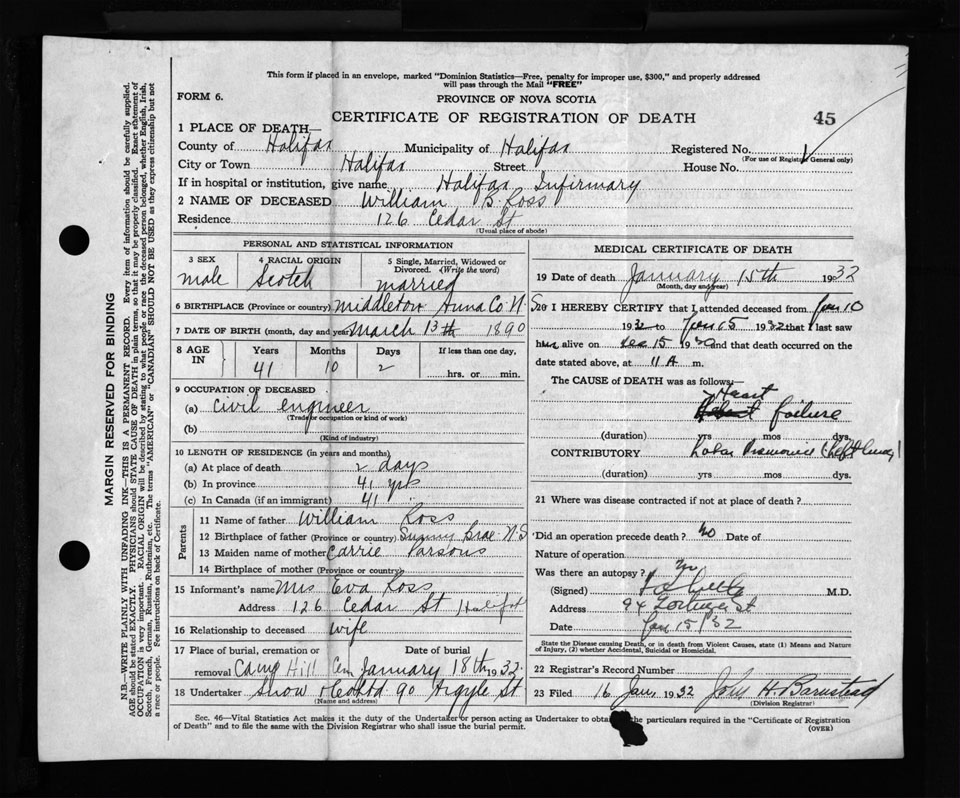 This form if placed in an envelope, marked "Dominion Statistics—Free, penalty for improper use, $300," and properly addressed
will pass through the Mail "FREE"
FORM 6.
PROVINCE OF NOVA SCOTIA
CERTIFICATE OF REGISTRATION OF DEATH
45
1 PLACE OF DEATH—
County of Halifax Municipality of Halifax Registered No.
(For use of Registrar General only)
City or Town Halifax Street House No.
If in hospital or institution, give name Halifax Infirmary
2 NAME OF DECEASED William B. Ross
Residence 126 Cedar St
(Usual place of abode)
PERSONAL AND STATISTICAL INFORMATION
3 SEX 4 RACIAL ORIGIN 5 Single, Married, Widowed or Divorced. (Write the word)
male Scotch married
6 BIRTHPLACE (Province or country) Middleton Anna Co. N.S
7 DATE OF BIRTH (month, day and year) March 13th 1890
8 AGE IN Years Months Days If less than one day,
41 10 2 hrs. or min.
9 OCCUPATION OF DECEASED
(a) civil engineer
(Trade or occupation or kind of work)
(b)
(Kind of industry)
10 LENGTH OF RESIDENCE (in years and months)
(a) At place of death 2 days
(b) In province 41 yrs
(c) In Canada (if an immigrant) 41
Parents
11 Name of father William Ross
12 Birthplace of father (Province or country) Sunny Brae N.S
13 Maiden name of mother Carrie Parsons
14 Birthplace of mother (Province or country)
15 Informant's name Mrs Eva Ross
Address 126 Cedar St Halifax
16 Relationship to deceased wife
17 Place of burial, cremation or removal Camp Hill Cem Date of burial January 18th 1932
18 Undertaker Snow & Co Ltd 90 Argyle St
(Name and address)
MEDICAL CERTIFICATE OF DEATH
19 Date of death January 15th 1932
(Month, day and year)
20 I HEREBY CERTIFY that I attended deceased from Jan 10
1932 to Jan 15 1932 that I last saw
him alive on 15 193 and that death occurred on the
date stated above, at 11 A m.
The CAUSE of DEATH was as follows:—
Heart
failure
(duration) yrs mos dys.
CONTRIBUTORY Lobar Pneumonia (Left lung)
(duration) yrs. mos. dys.
21 Where was disease contracted if not at place of death?
Did an operation precede death? No Date of
Nature of operation
Was there an autopsy? No
(Signed) M.D.
Address 94 St
Date Jan 15/32
State the Disease causing Death, or in death from Violent Causes, state (1) Means and Nature
of Injury, (2) whether Accidental, Suicidal or Homicidal.
22 Registrar's Record Number
23 Filed 16 Jany 1932 John H Barnstead
(Division Registrar)
Sec. 46—Vital Statistics Act makes it the duty of the Undertaker or person acting as Undertaker to obtain the particulars required in the "Certificate of Registration
of Death" and to file the same with the Division Registrar who shall issue the burial permit.
(OVER)
MARGIN RESERVED FOR BINDING
N.B.—WRITE PLAINLY WITH UNFADING INK—THIS IS A PERMANENT RECORD. Every item of information should be carefully supplied.
AGE should be stated EXACTLY. PHYSICIANS should STATE CAUSE OF DEATH in plain terms, so that it may be properly classified. Exact statement of
OCCUPATION is very important. RACIAL ORIGIN will be described by stating to what people or race the deceased person belonged, whether English, Irish,
Scotch, French, German, Russian, Ruthenian, etc. The terms "AMERICAN" or "CANADIAN" SHOULD NOT BE USED as they express citizenship but not
a race or people. Fee instructions on back of Certificate.